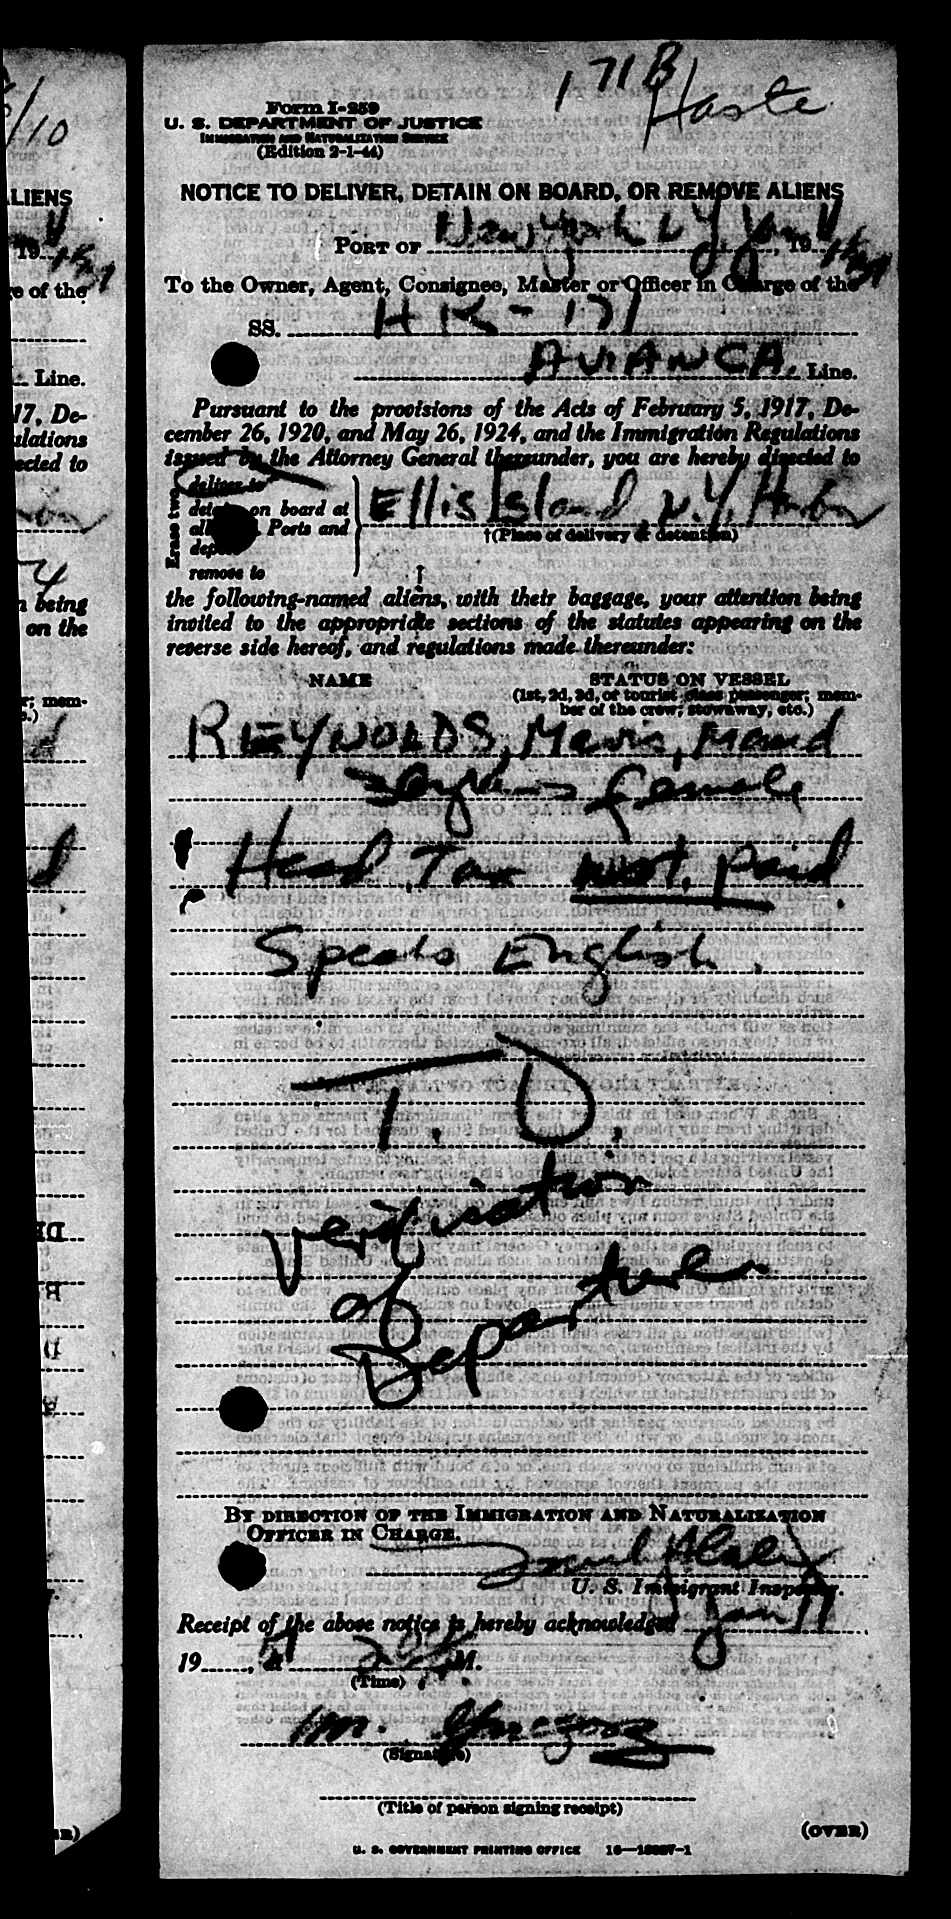 /10
LIENS
19
e of the
Line.
17, De-
ulations
ected to
n being
on the
r; mem-
171B
Haste
Form I-259
U. S. DEPARTMENT OF JUSTICE
IMMIGRATION AND NATURALIZATION SERVICE
(Edition 2-1-44)
NOTICE TO DELIVER, DETAIN ON BOARD, OR REMOVE ALIENS
PORT OF New York N.Y. Jan , 19
To the Owner, Agent, Consignee, Master or Officer in Charge of the
SS. HK-171
AVIANCA. Line.
Pursuant to the provisions of the Acts of February 5, 1917, De-
cember 26, 1920, and May 26, 1924, and the Immigration Regulations
issued by the Attorney General thereunder, you are hereby directed to
Erase two
deliver to
detain on board at
all Ports and
remove to
Ellis Island, N.Y. Harbor
†(Place of delivery or detention)
the following-named aliens, with their baggage, your attention being
invited to the appropriate sections of the statutes appearing on the
reverse side hereof, and regulations made thereunder:
NAME STATUS ON VESSEL
(1st, 2d, 3d, or tourist class passenger; mem-
ber of the crew; stowaway, etc.)
REYNOLDS, Mavis, Maud
female
Head Tax must. paid.
Speaks English.
T. D.
verification
of
Departure
BY DIRECTION OF THE IMMIGRATION AND NATURALIZATION
OFFICER IN CHARGE.
U. S. Immigrant Inspector.
Receipt of the above notice is hereby acknowledged Jan 11
19 51, at M.
(Time)
M.
(Signature)
(Title of person signing receipt)
(OVER)
U. S. GOVERNMENT PRINTING OFFICE